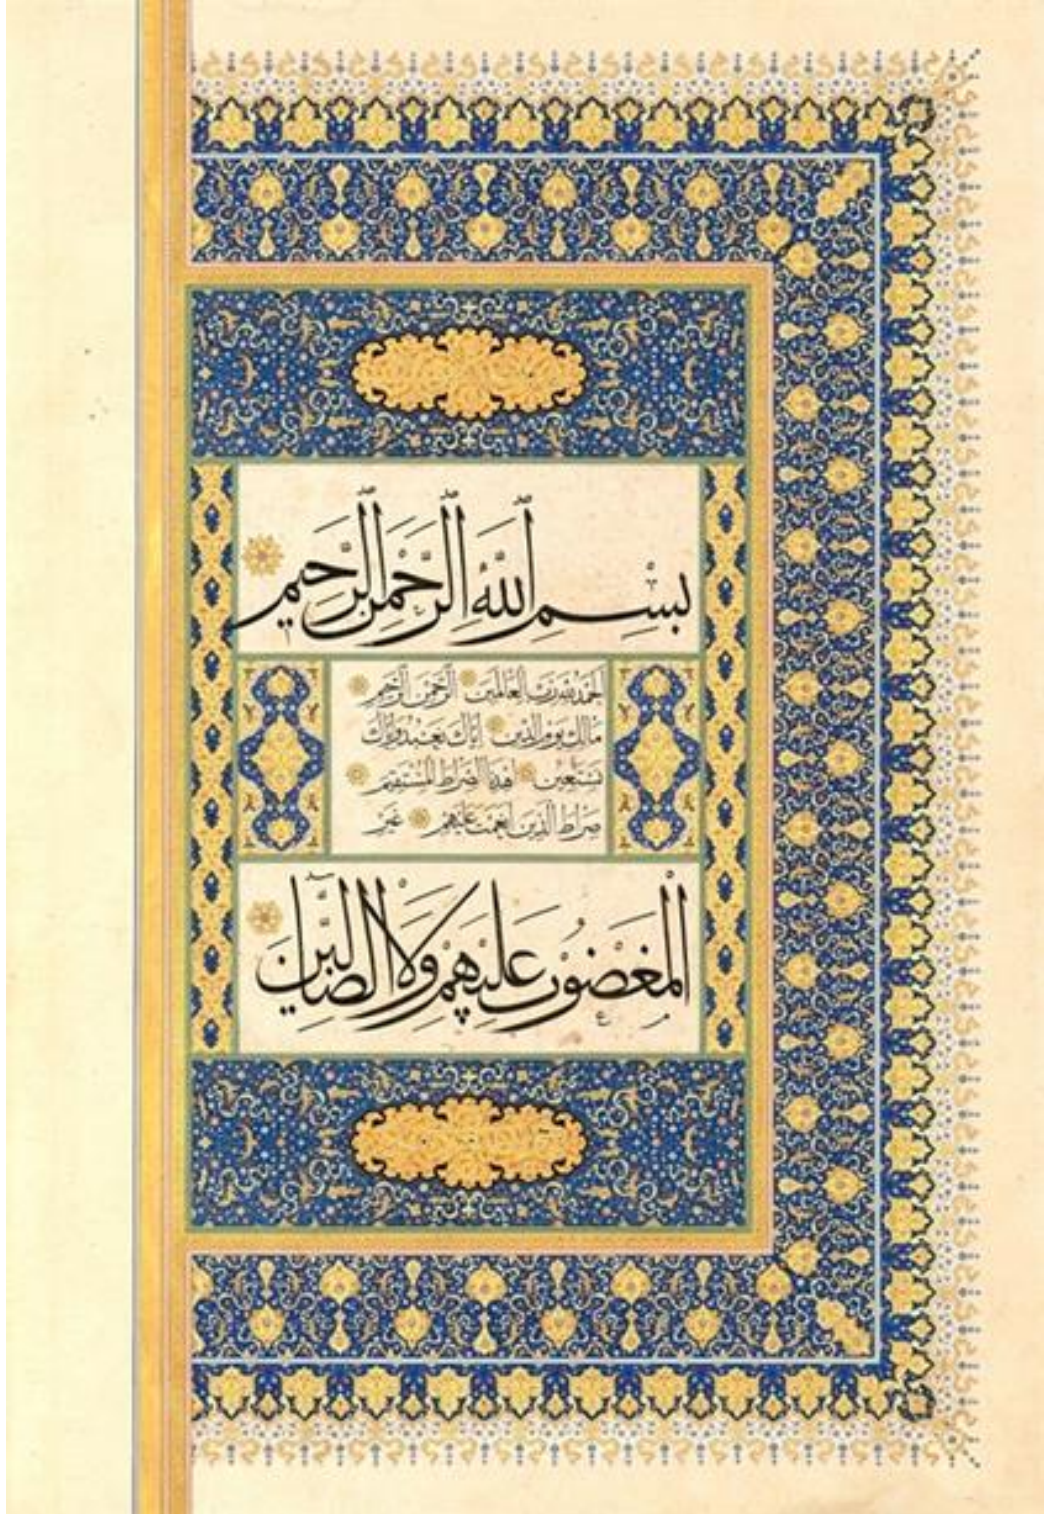 بِسْمِ اللَّهِ الرَّحْمَنِ الرَّحِيمِ
الحمد لله رب العالمين الرحمن الرحيم
مالك يوم الدين إياك نعبد وإياك
نستعين اهدنا الصراط المستقيم
صراط الذين أنعمت عليهم غير
الْمَغْضُوبِ عَلَيْهِمْ وَلَا الضَّالِّينَ